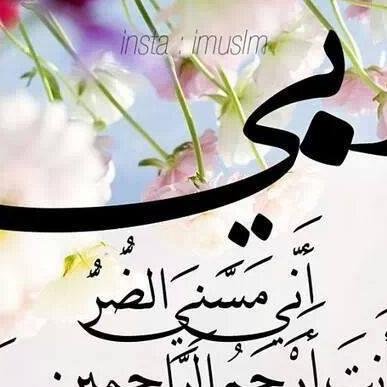 insta : imuslm
بي
أَنِّي مَسَّنِيَ الضُّرُّ
أَنتَ أَرْحَمُ الرَّاحِمِينَ